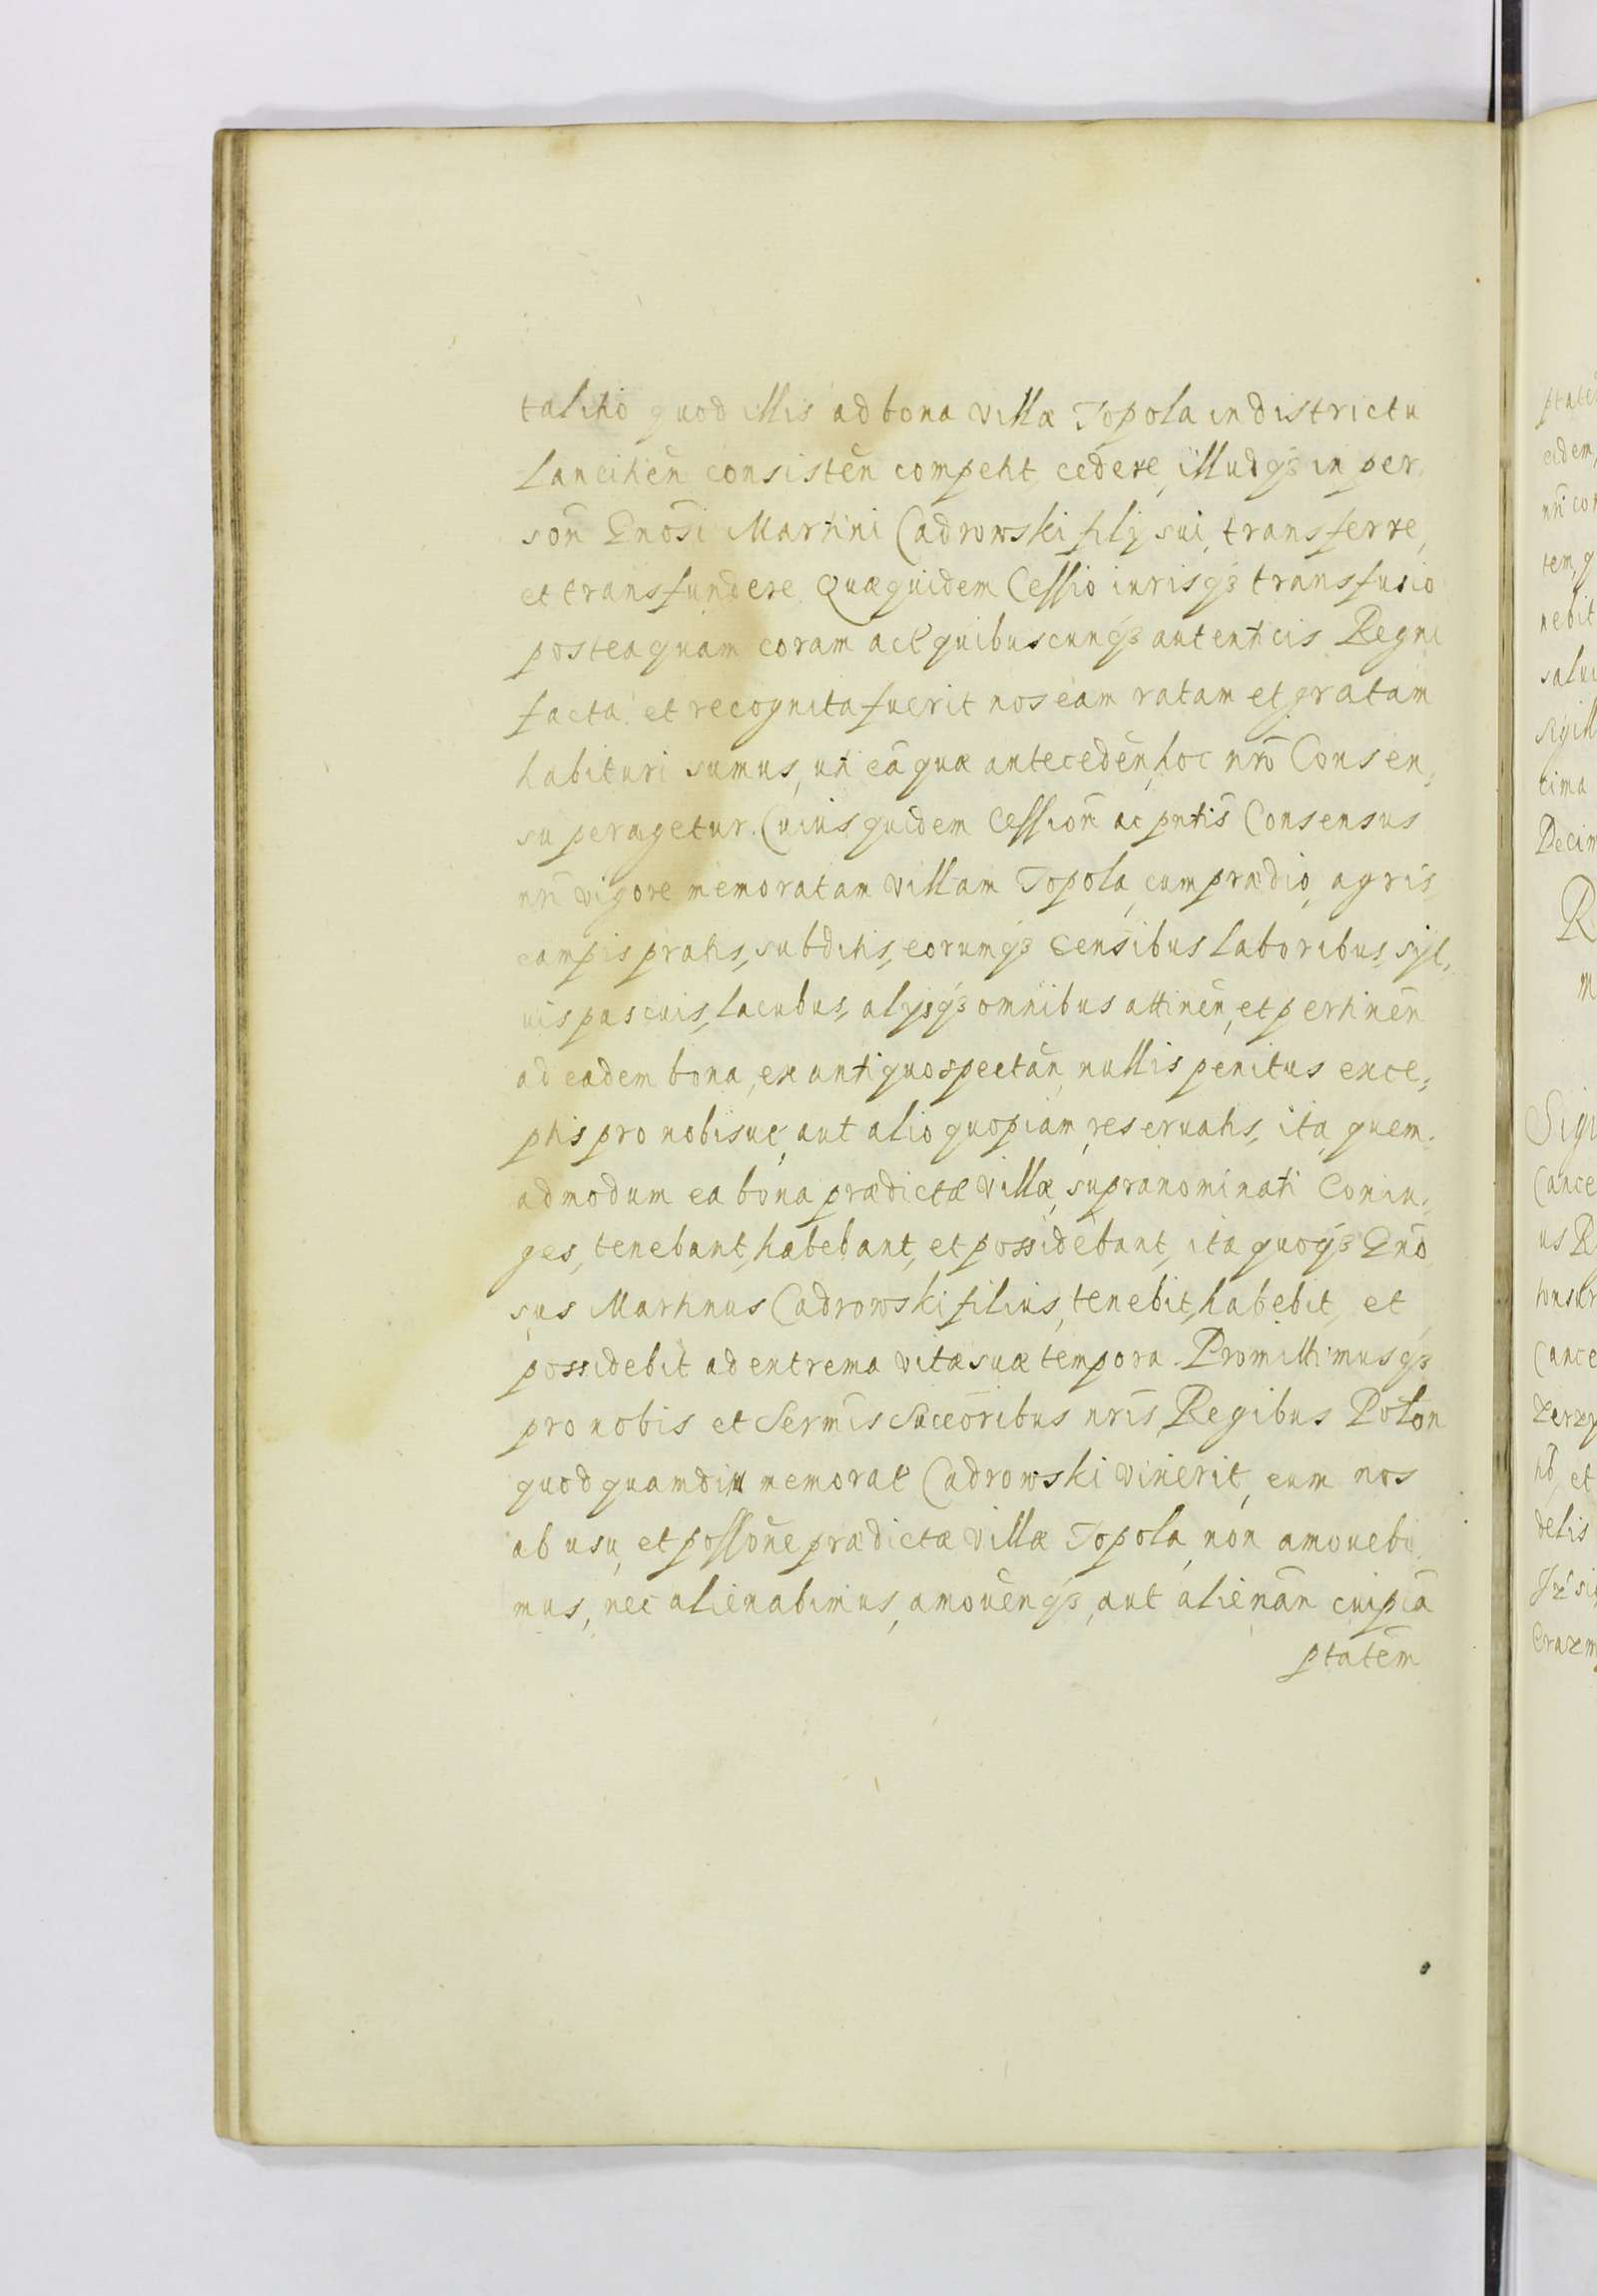 talitio quod illis ad bona villæ Topola in districtu
Lancitien̄ consisten̄ competit cedere, illudqꝫ in per
son̄ Gnōsi Martini Cadrowski filij sui, transferre,
et transfundere. Quæquidem Cessio iurisqꝫ transfusio
posteaquam coram act quibuscunqꝫ autenticis Regni
facta et recognita fuerit nos eam ratam et gratam
habituri sumus, uti eā quæ anteceden̄, hoc nr̄o Consen,
su peragetur. Cuius quidem Cession̄ ac pn̄tis Consensus
nr̄i vigore memoratam villam Topola, cum prædio, agris,
campis pratis, subditis, eorumqꝫ censibus laboribus, syl,
uis pascuis, lacubus, alijsqꝫ omnibus attinen̄, et pertinen̄
ad eadem bona, ex antiquo spectan̄, nullis penitus exce,
ptis pro nobisue, aut alio quopiam, reseruatis, ita, quem,
admodum ea bona prædictæ villæ, supranominati Coniu,
ges, tenebant, habebant, et possidebant, ita quoqꝫ Gnō
sus Martinus Cadrowski filius, tenebit, habebit, et
possidebit ad extrema vitæ suæ tempora. Promittimusqꝫ
pro nobis et Serm̄is Succōribus nr̄is Regibus Polon
quod quamdiu memorat Cadrowski vixerit, eum nos
ab usu, et possōne prædictæ villæ Topola, non amouebi
mus, nec alienabimus, amouen̄qꝫ, aut alienan̄ cuipiā
ptatēm